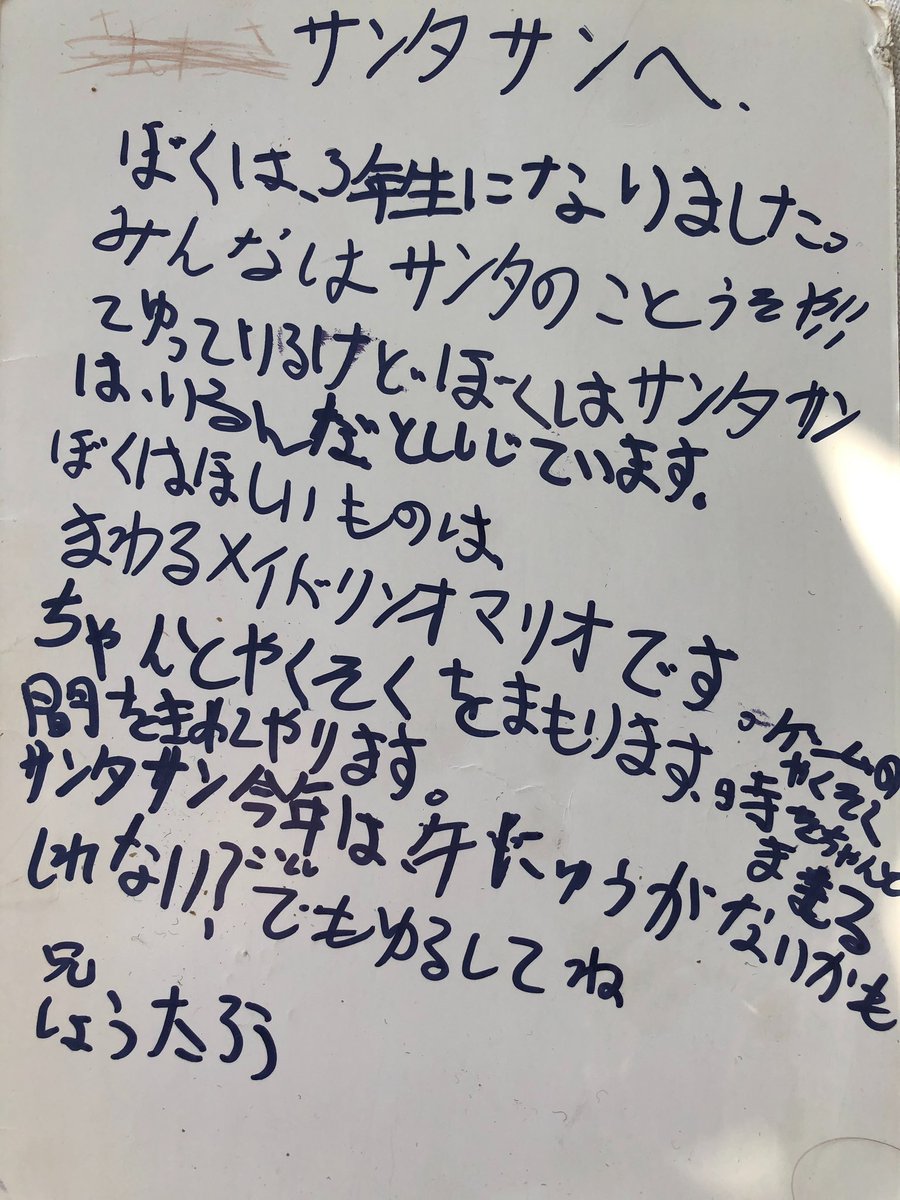 サンタサンへ.
ぼくは、3年生になりました。
みんなはサンタのことうそや!!
てゆっているけど、ぼくしはサンタサン
は、いるんだとしんじています。
ぼくはほしいものは、
まわるメイドリンオマリオです
ちゃんとやくそくをまもります。時
間をきめてやります。
サンタサン今年は、牛にゅうがないかも
しれない!?でもゆるしてね
兄
しょう太ろう
。ゲームの
やくそく
をちゃんと
まもる